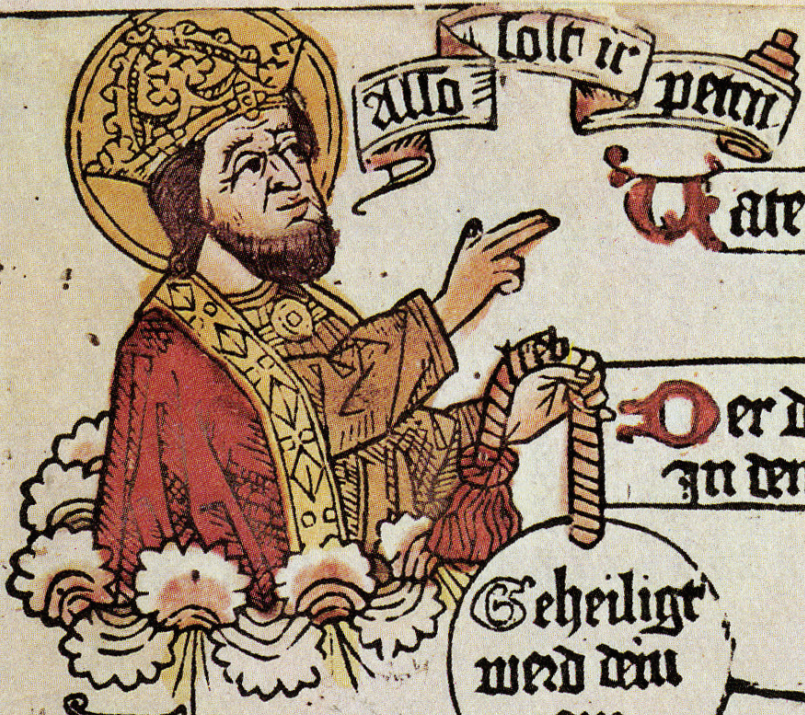 Also solt ir peten
Vate
Der d
In den
Geheiligt
werd dein